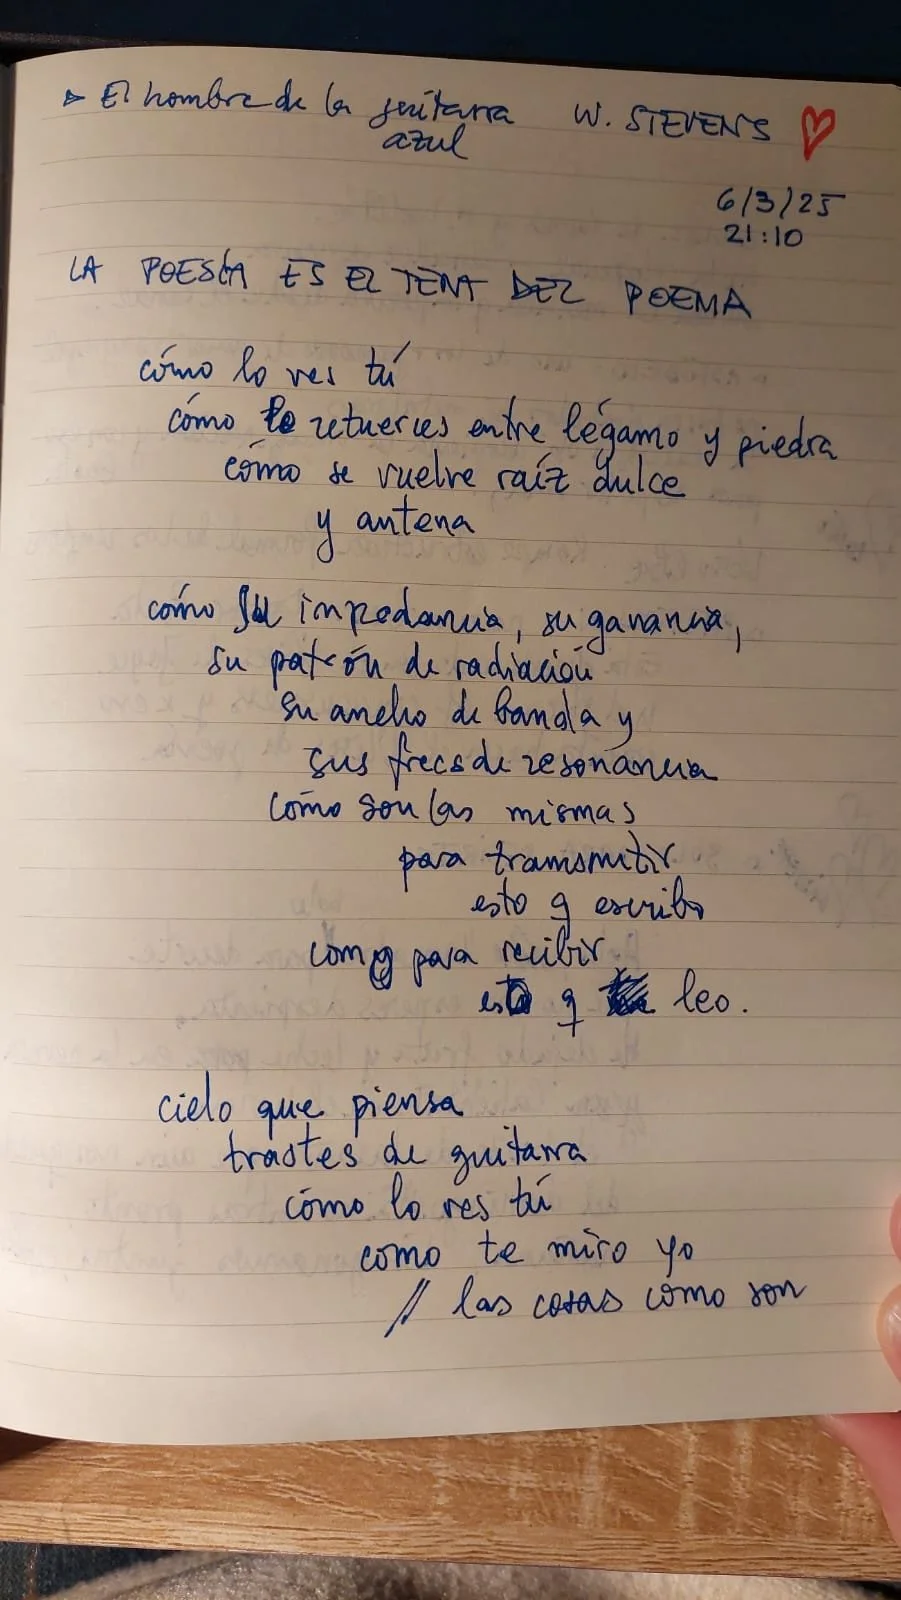 ▷ El hombre de la guitarra W. STEVENS
azul
6/3/25
21:10
LA POESÍA ES EL TENT DEL POEMA
cómo lo ves tú
cómo te retuerces entre légamo y piedra
cómo se vuelve raíz dulce
y antena
cómo su impedancia, su ganancia,
su patrón de radiación
su ancho de banda y
sus frecs de resonancia
cómo son las mismas
para transmitir
esto q escribo
como para recibir
esto q leo.
cielo que piensa
trastes de guitarra
cómo lo ves tú
cómo te miro yo
// las cosas como son